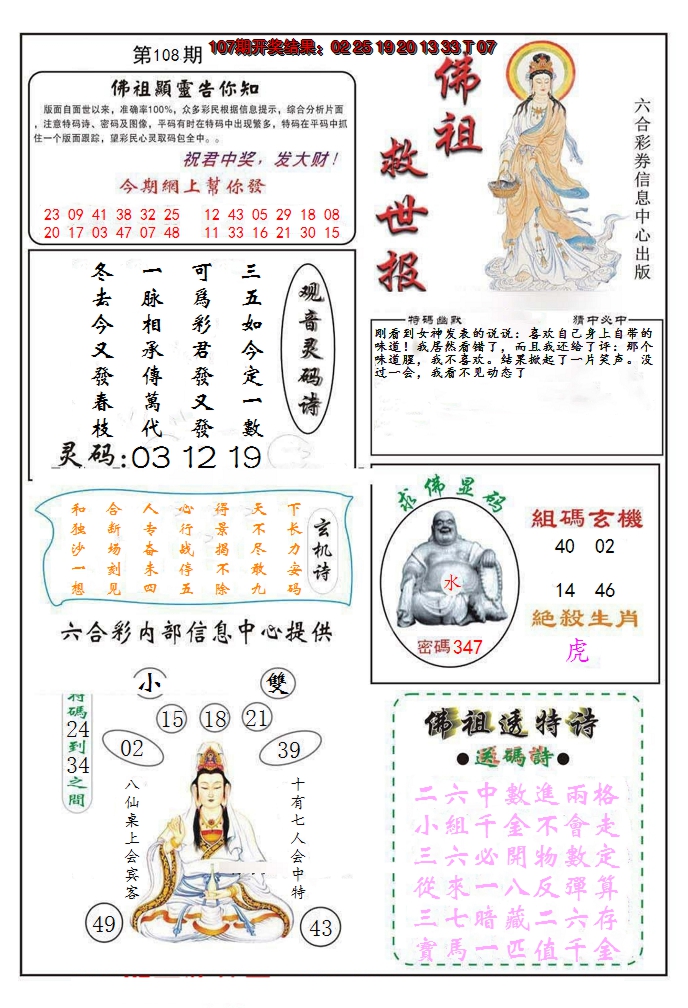 107期开奖结果：02 25 19 20 13 33 T 07
第108期
佛祖顯靈告你知
版面自面世以来，准确率100%，众多彩民根据信息提示，综合分析片面
，注意特码诗、密码及图像，平码有时在特码中出现繁多，特码在平码中抓
住一个版面跟踪，望彩民心灵取码包全中。。
祝君中奖，发大财！
今期網上幫你發
23 09 41 38 32 25 12 43 05 29 18 08
20 17 03 47 07 48 11 33 16 21 30 15
佛祖
救世报
六合彩券信息中心出版
观音灵码诗
三五如今定一數
可爲彩君發又發
一脉相承傳萬代
冬去今又發春枝
灵码:03 12 19
特碼幽默
猜中必中
刚看到女神发表的说说：喜欢自己身上自带的
味道！我居然看错了，而且我还给了评：那个
味道腥，我不喜欢。结果掀起了一片笑声。没
过一会，我看不见动态了
玄机诗
下长力安码
天不尽敢九
得景揭不除
心行战停五
人专奋未四
合断场刻见
和独沙一想
六合彩内部信息中心提供
求佛显码
水
密碼347
組碼玄機
40 02
14 46
絶殺生肖
虎
小
雙
特碼24到34之間
15
18
21
02
39
八仙桌上会宾客
十有七人会中特
49
43
佛祖透特诗
●送碼詩●
二六中數進兩格
小組千金不會走
三六必開物數定
從來一八反彈算
三七暗藏二六存
寳馬一匹值千金